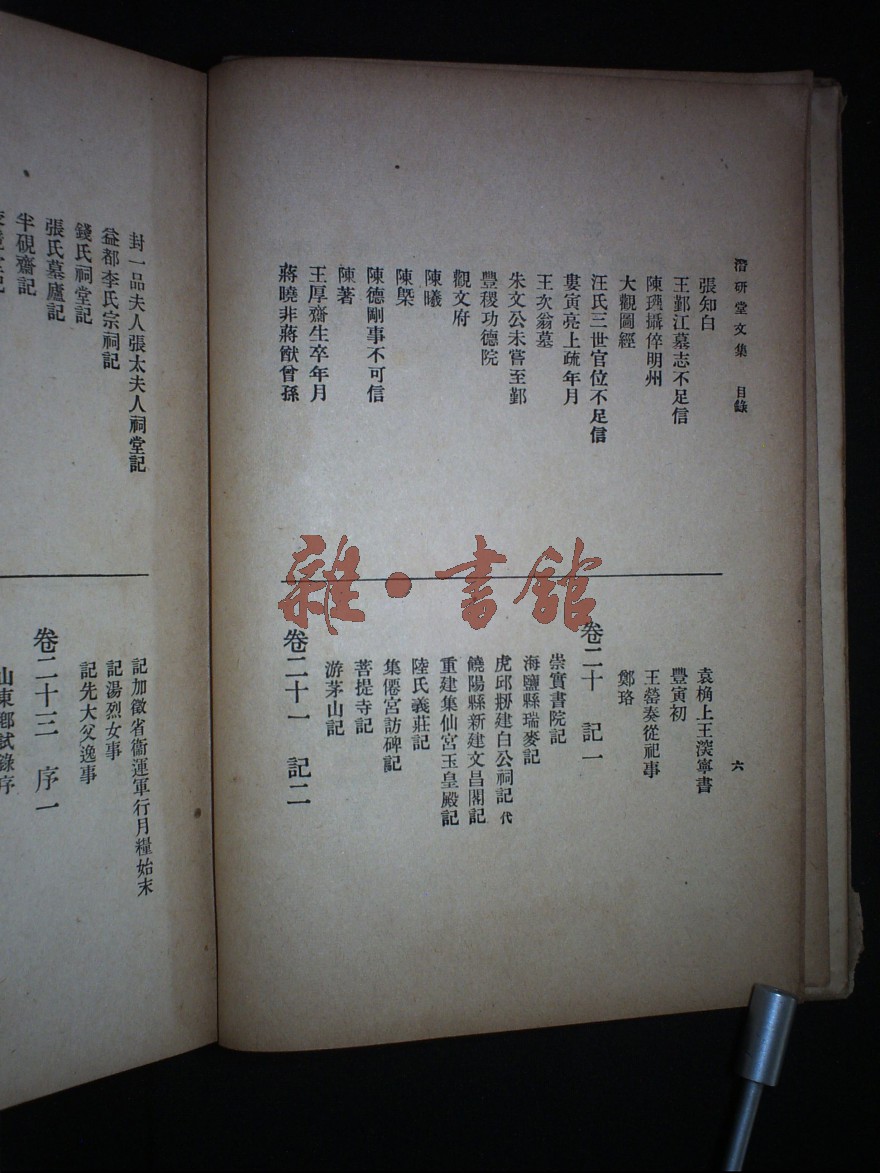 潛研堂文集 目錄 六
張知白
王鄞江墓志不足信
陳瓘攝倅明州
大觀圖經
汪氏三世官位不足信
婁寅亮上疏年月
王次翁墓
朱文公未嘗至鄞
豐稷功德院
觀文府
陳曦
陳槩
陳德剛事不可信
陳著
王厚齋生卒年月
蔣曉非蔣猷曾孫
袁桷上王深寧書
豐寅初
王䓨奏從祀事
鄭珞
卷二十 記一
崇實書院記
海鹽縣瑞麥記
虎邱剏建白公祠記 代
饒陽縣新建文昌閣記
重建集仙宮玉皇殿記
陸氏義莊記
集僊宮訪碑記
菩提寺記
游茅山記
卷二十一 記二
封一品夫人張太夫人祠堂記
益都李氏宗祠記
錢氏祠堂記
張氏墓廬記
半硯齋記
記加徵省衞運軍行月糧始末
記湯烈女事
記先大父逸事
卷二十三 序一
山東鄉試錄序
雜·書館